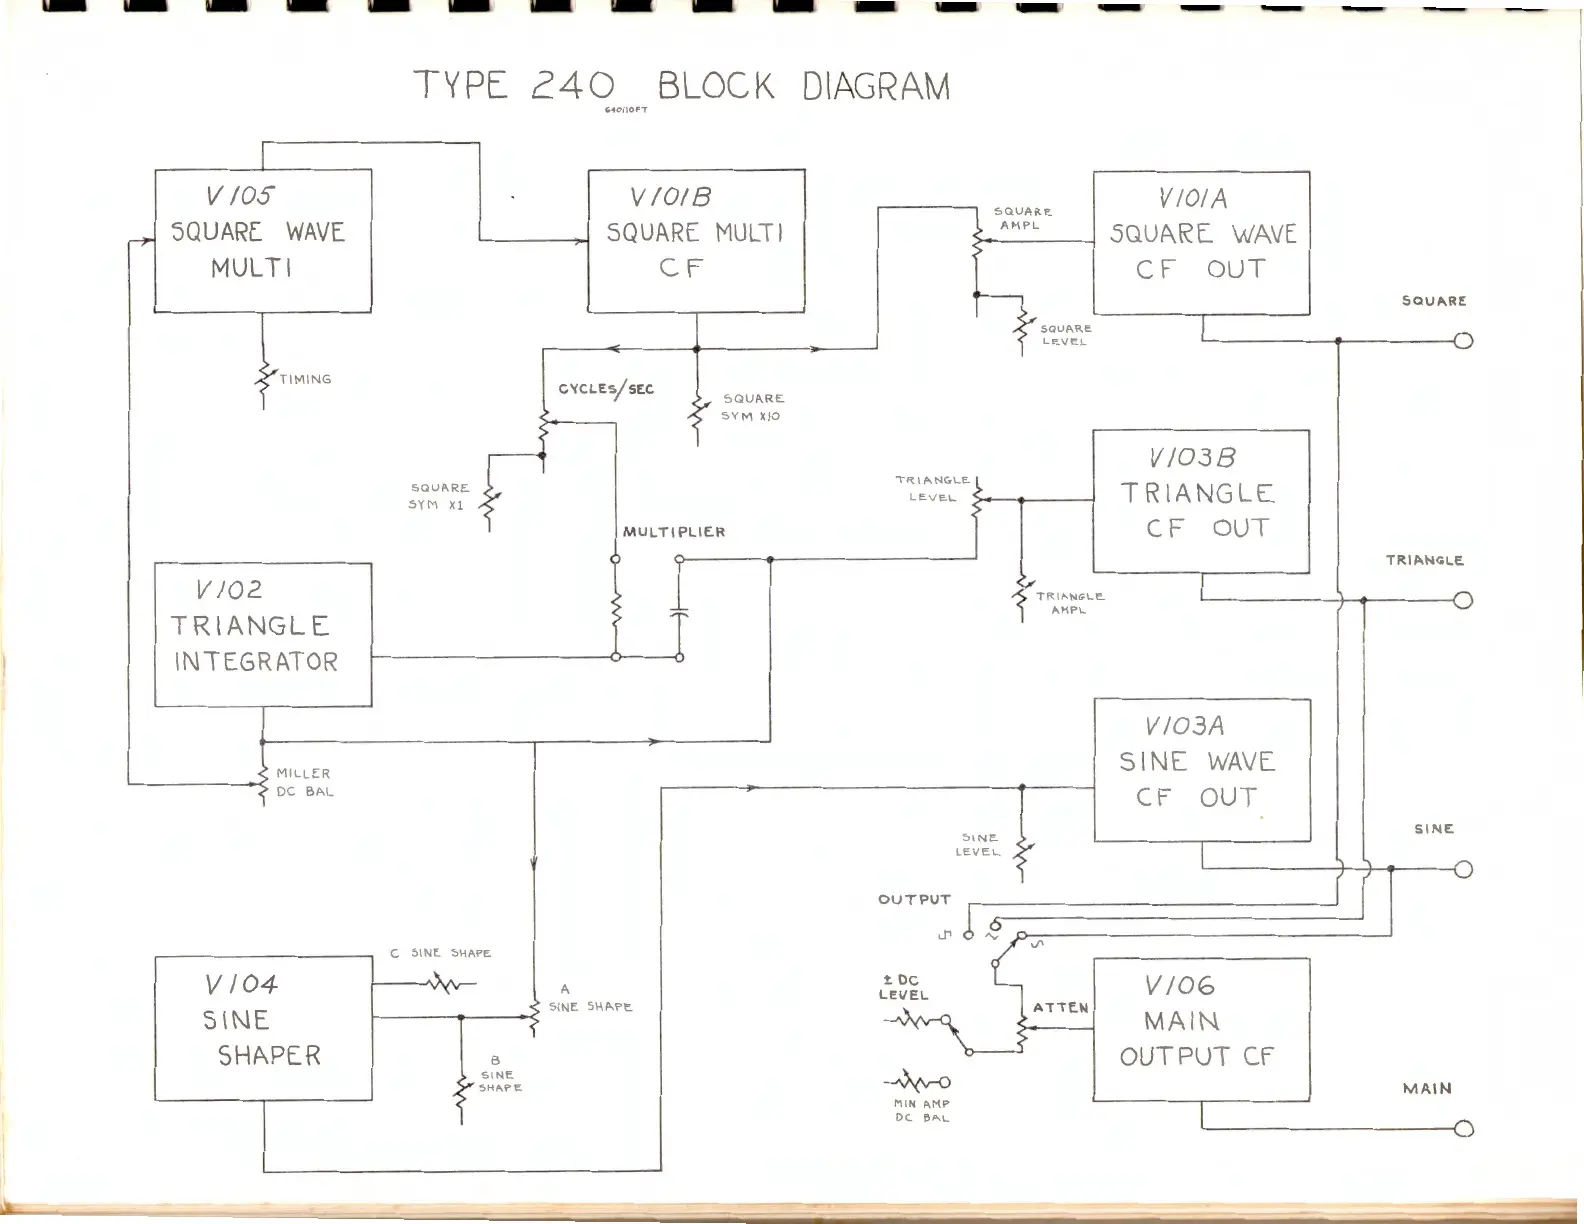 TYPE 240 BLOCK DIAGRAM
V105
SQUARE WAVE
MULTI
V101B
SQUARE MULTI
CF
SQUARE
AMPL
V101A
SQUARE WAVE
CF OUT
SQUARE
SQUARE
LEVEL
TIMING
CYCLES/SEC
SQUARE
SYM X10
SQUARE
SYM X1
TRIANGLE
LEVEL
V103B
TRIANGLE
CF OUT
MULTIPLIER
TRIANGLE
V102
TRIANGLE
INTEGRATOR
TRIANGLE
AMPL
V103A
SINE WAVE
CF OUT
MILLER
DC BAL
SINE
LEVEL
SINE
OUTPUT
C SINE SHAPE
V104
SINE
SHAPER
A
SINE SHAPE
± DC
LEVEL
ATTEN
V106
MAIN
OUTPUT CF
B
SINE
SHAPE
MIN AMP
DC BAL
MAIN